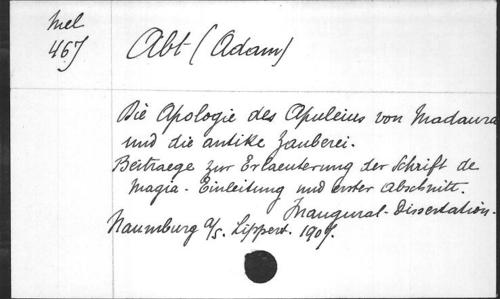 Mel
467
Abt (Adam)
Die Apologie des Apuleius von Madaura
und die antike Zauberei.
Beitraege zur Erlaeuterung der Schrift de
Magia - Einleitung und erster Abschnitt.
Inaugural-Dissertation.
Naumburg a/S. Lippert. 1907.